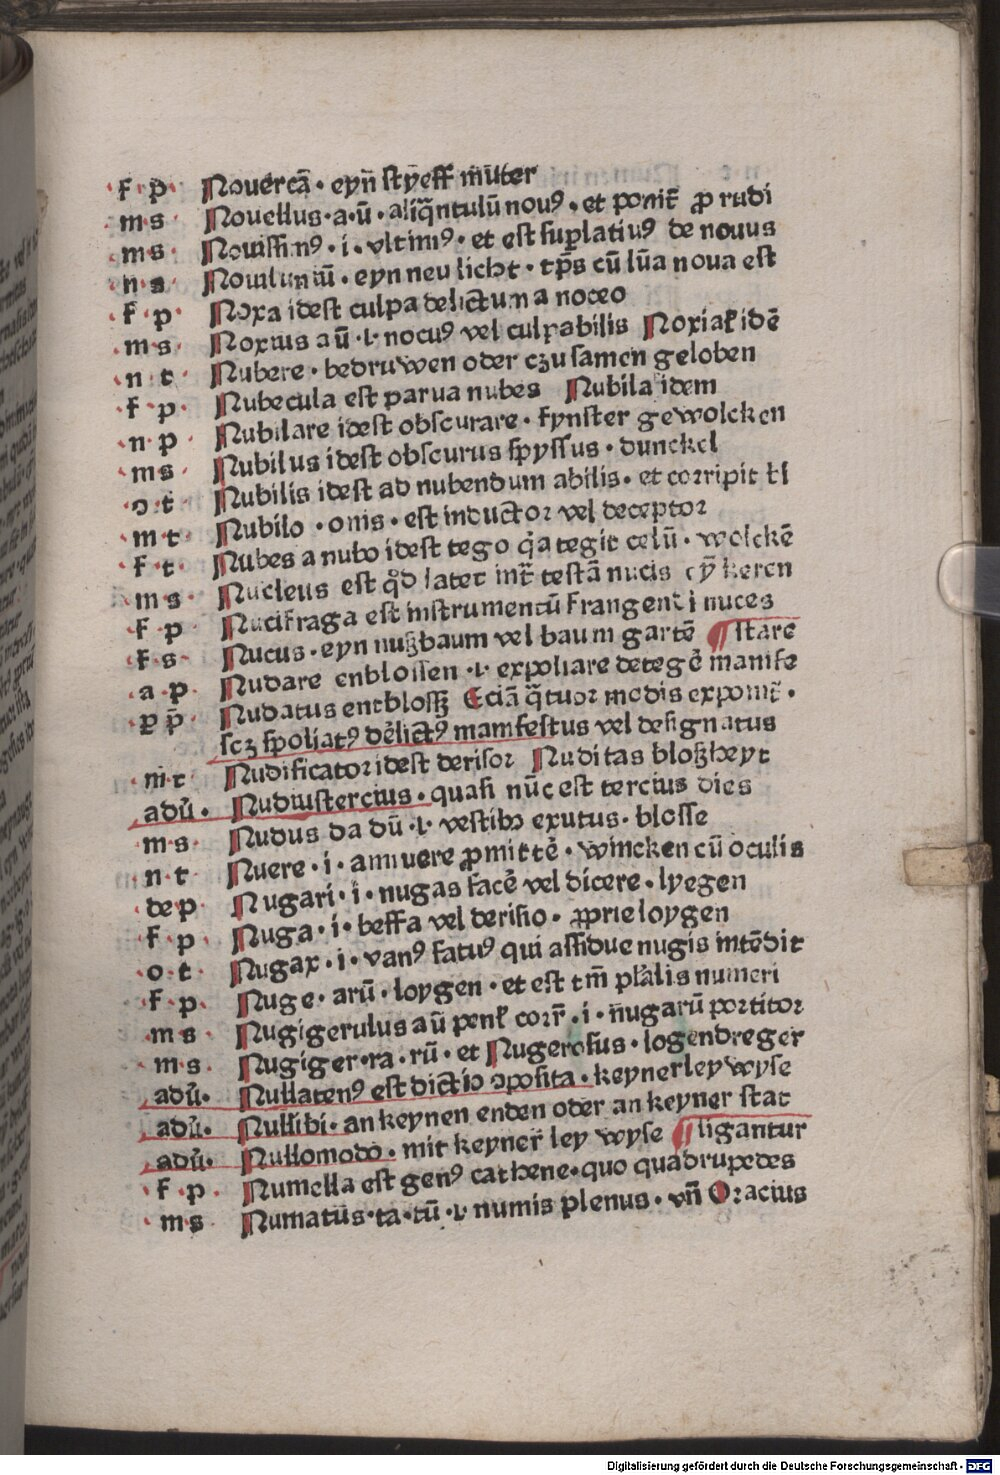 f p Nouercā · eyn̄ styeff mūter
m s Nouellus · a · ū · aliq̄ntulū nouꝯ · et ponit̄ ꝓ rudi
m s Nouissimꝯ · i · vltimꝯ · et est suꝑlatiuꝯ de nouus
n s Nouiluniū · eyn neu licht · tp̄s cū lūa noua est
f p Noxa idest culpa delictum a noceo
m s Noxius a ū · l · nocuꝯ vel culpabilis Noxial idē
n t Nubere · bedruwen oder czu samen geloben
f p Nubecula est parua nubes Nubila idem
n p Nubilare idest obscurare · fynster gewolcken
m s Nubilus idest obscurus spyssus · dunckel
o t Nubilis idest ad nubendum abilis · et corripit
m t Nubilo · onis · est inductor vel deceptor
f t Nubes a nubo idest tego q̄a tegit celū · wolckē
m s Nucleus est qd̄ latet int̄ testā nucis eȳ keren
f p Nucifraga est instrumentū frangendi nuces
f s Nucus · eyn nußbaum vel baum gartē ¶ stare
a p Nudare enblossen · l · expoliare detegē manife
ꝑ p̄ Nudatus entbloss Eciā q̄tuor modis exponit̄ ·
scꝫ spoliatꝯ dēlictꝯ manifestus vel designatus
m t Nudificator idest derisor Nuditas bloßheyt
adū · Nudiustercius · quasi nūc est tercius dies
m s Nudus da dū · l · vestibꝫ exutus · blosse
n t Nuere · i · annuere ꝓmittē · wincken cū oculis
de p Nugari · i · nugas facē vel dicere · lyegen
f p Nuga · i · beffa vel derisio · ꝓprie loygen
o t Nugax · i · vanꝯ fatuꝯ qui assidue nugis intēdit
f p Nuge · arū · loygen · et est tm̄ pl̄alis numeri
m s Nugigerulus a ū penl̄ corr̄ · i · nugarū portitor
m s Nugiger · ra · rū · et Nugerosus · logendreger
adū · Nullatenꝯ est dictio ꝯposita · keynerley wyse
adū · Nullibi · an keynen enden oder an keyner stat
adū · Nullomodo · mit keyner ley wyse ¶ ligantur
f p Numella est genꝯ cathene · quo quadrupedes
m s Numatus · ta · tū · l · numis plenus · vn̄ Oracius
Digitalisierung gefördert durch die Deutsche Forschungsgemeinschaft - DFG